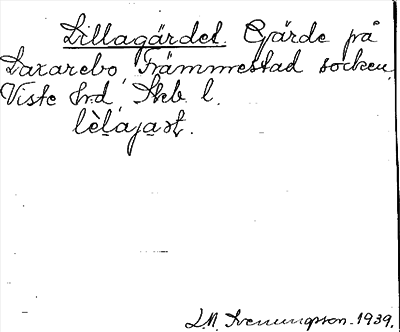 Lillagärdet. Gärde på
Laxarebo, Främmestad socken,
Viste hrd, Skb l.
lèlajaət.
L.M. Svenungsson. 1939.